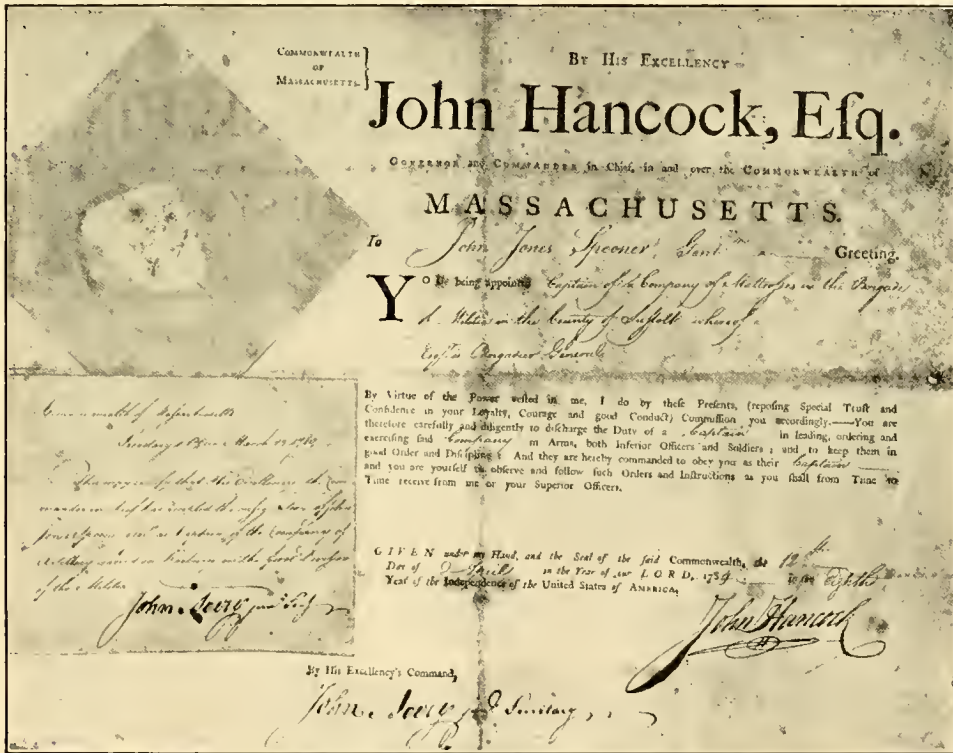 COMMONWEALTH
OF
MASSACHUSETTS.
BY HIS EXCELLENCY
John Hancock, Eſq.
GOVERNOR and COMMANDER in Chief, in and over the COMMONWEALTH of
MASSACHUSETTS.
To John Jones Spooner Gent Greeting.
YOU being appointed Captain of a Company of Matrosses in the Brigade
of Militia in the County of Suffolk whereof
Esqr is Brigadier General
By Virtue of the Power veſted in me, I do by theſe Preſents, (repoſing Special Truſt and
Confidence in your Loyalty, Courage and good Conduct) Commiſſion you accordingly.——You are
therefore carefully and diligently to diſcharge the Duty of a Captain in leading, ordering and
exerciſing ſaid Company in Arms, both Inferior Officers and Soldiers; and to keep them in
good Order and Diſcipline: And they are hereby commanded to obey you as their Captain
and you are yourſelf to obſerve and follow ſuch Orders and Inſtructions as you ſhall from Time to
Time receive from me or your Superior Officers.
GIVEN under my Hand, and the Seal of the ſaid Commonwealth, the 12th
Day of April in the Year of our LORD, 1784 in the Eighth
Year of the Independence of the United States of AMERICA.
John Hancock
By His Excellency's Command,
John Avery junr Secretary
Commonwealth of Massachusetts
Secretary's Office March
that his Excellency the Com
mander in Chief has the of John
Jones Spooner as Captain of the Company of
Artillery in the Division
of the Militia
John Avery junr Secy